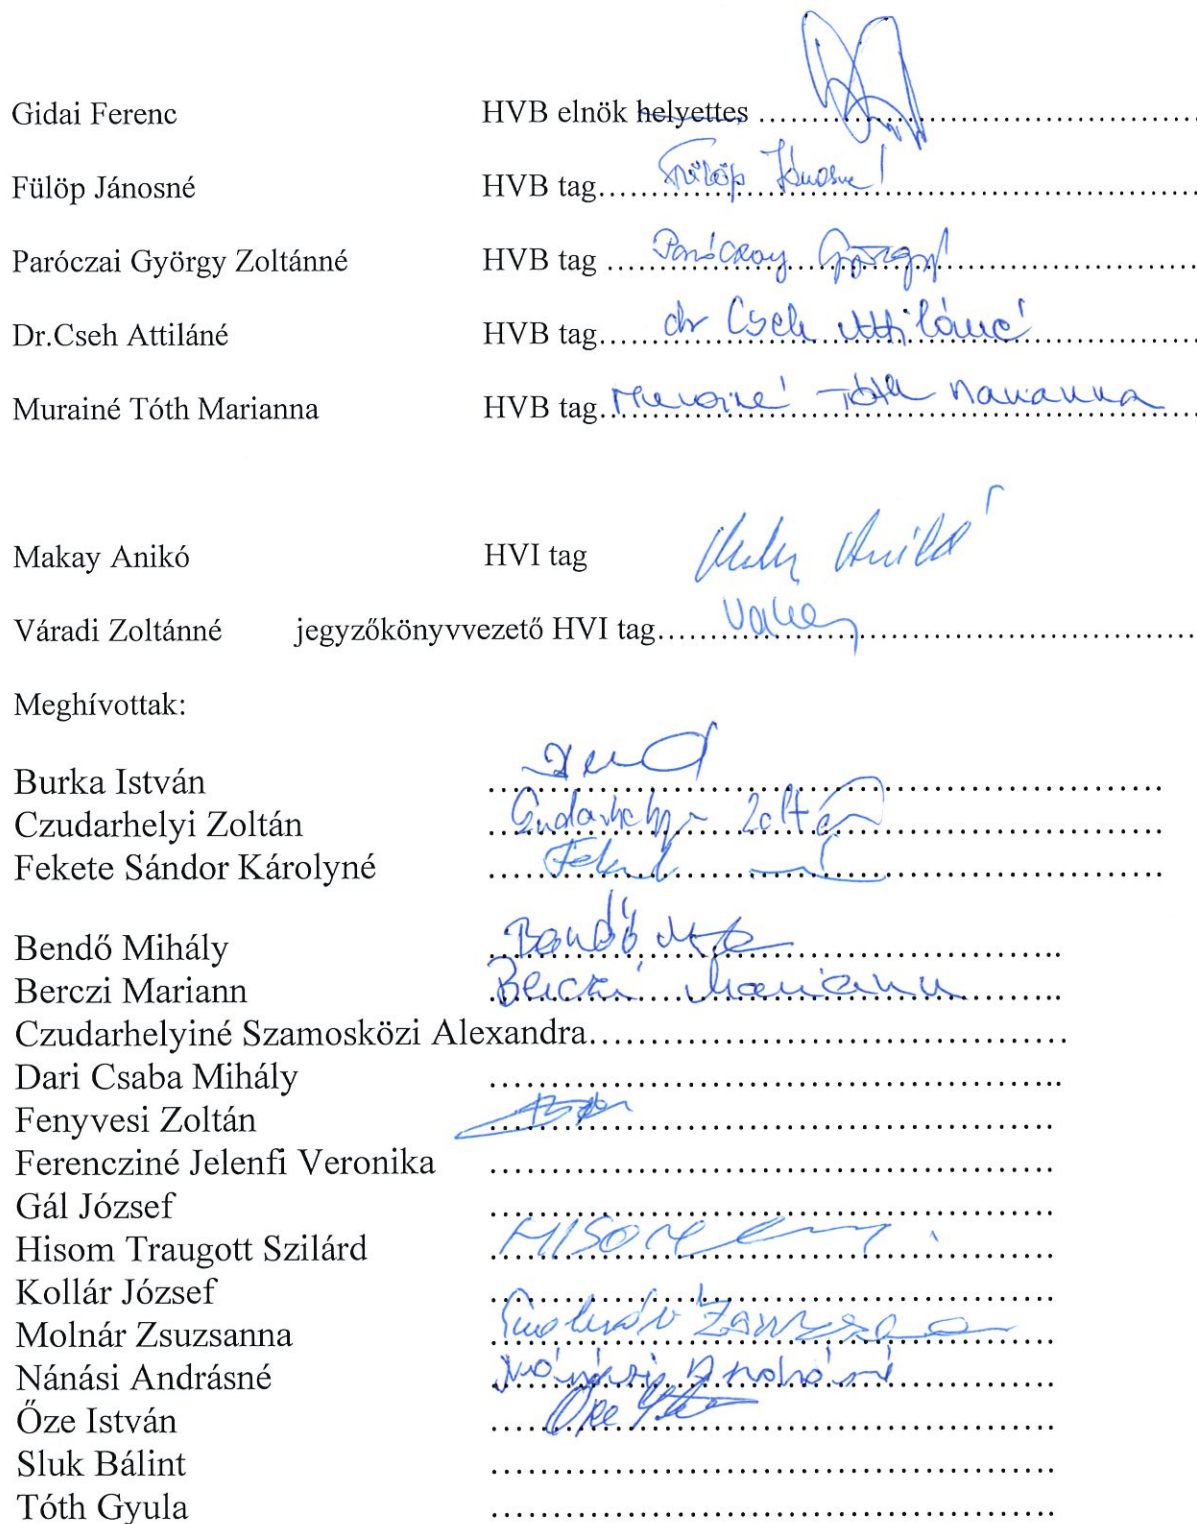 Gidai Ferenc HVB elnök helyettes ……………………………………
Fülöp Jánosné HVB tag…… Fülöp Jánosné ……………………
Paróczai György Zoltánné HVB tag …… Paróczay György ……………………
Dr.Cseh Attiláné HVB tag…… dr Cseh Attiláné ……………………
Murainé Tóth Marianna HVB tag Murainé Tóth Marianna
Makay Anikó HVI tag
Váradi Zoltánné jegyzőkönyvvezető HVI tag……………………………………
Meghívottak:
Burka István ……………………………………
Czudarhelyi Zoltán …… Czudarhelyi Zoltán ……………………
Fekete Sándor Károlyné ……………………………………
Bendő Mihály …… Bendő ……………………
Berczi Mariann …… Berczi Mariann ……………………
Czudarhelyiné Szamosközi Alexandra……………………………………
Dari Csaba Mihály ……………………………………
Fenyvesi Zoltán ……………………………………
Ferencziné Jelenfi Veronika ……………………………………
Gál József ……………………………………
Hisom Traugott Szilárd …… HISOM ……………………
Kollár József ……………………………………
Molnár Zsuzsanna ……………………………………
Nánási Andrásné …… Nánási Andrásné ……………………
Őze István …… Őze ……………………
Sluk Bálint ……………………………………
Tóth Gyula ……………………………………